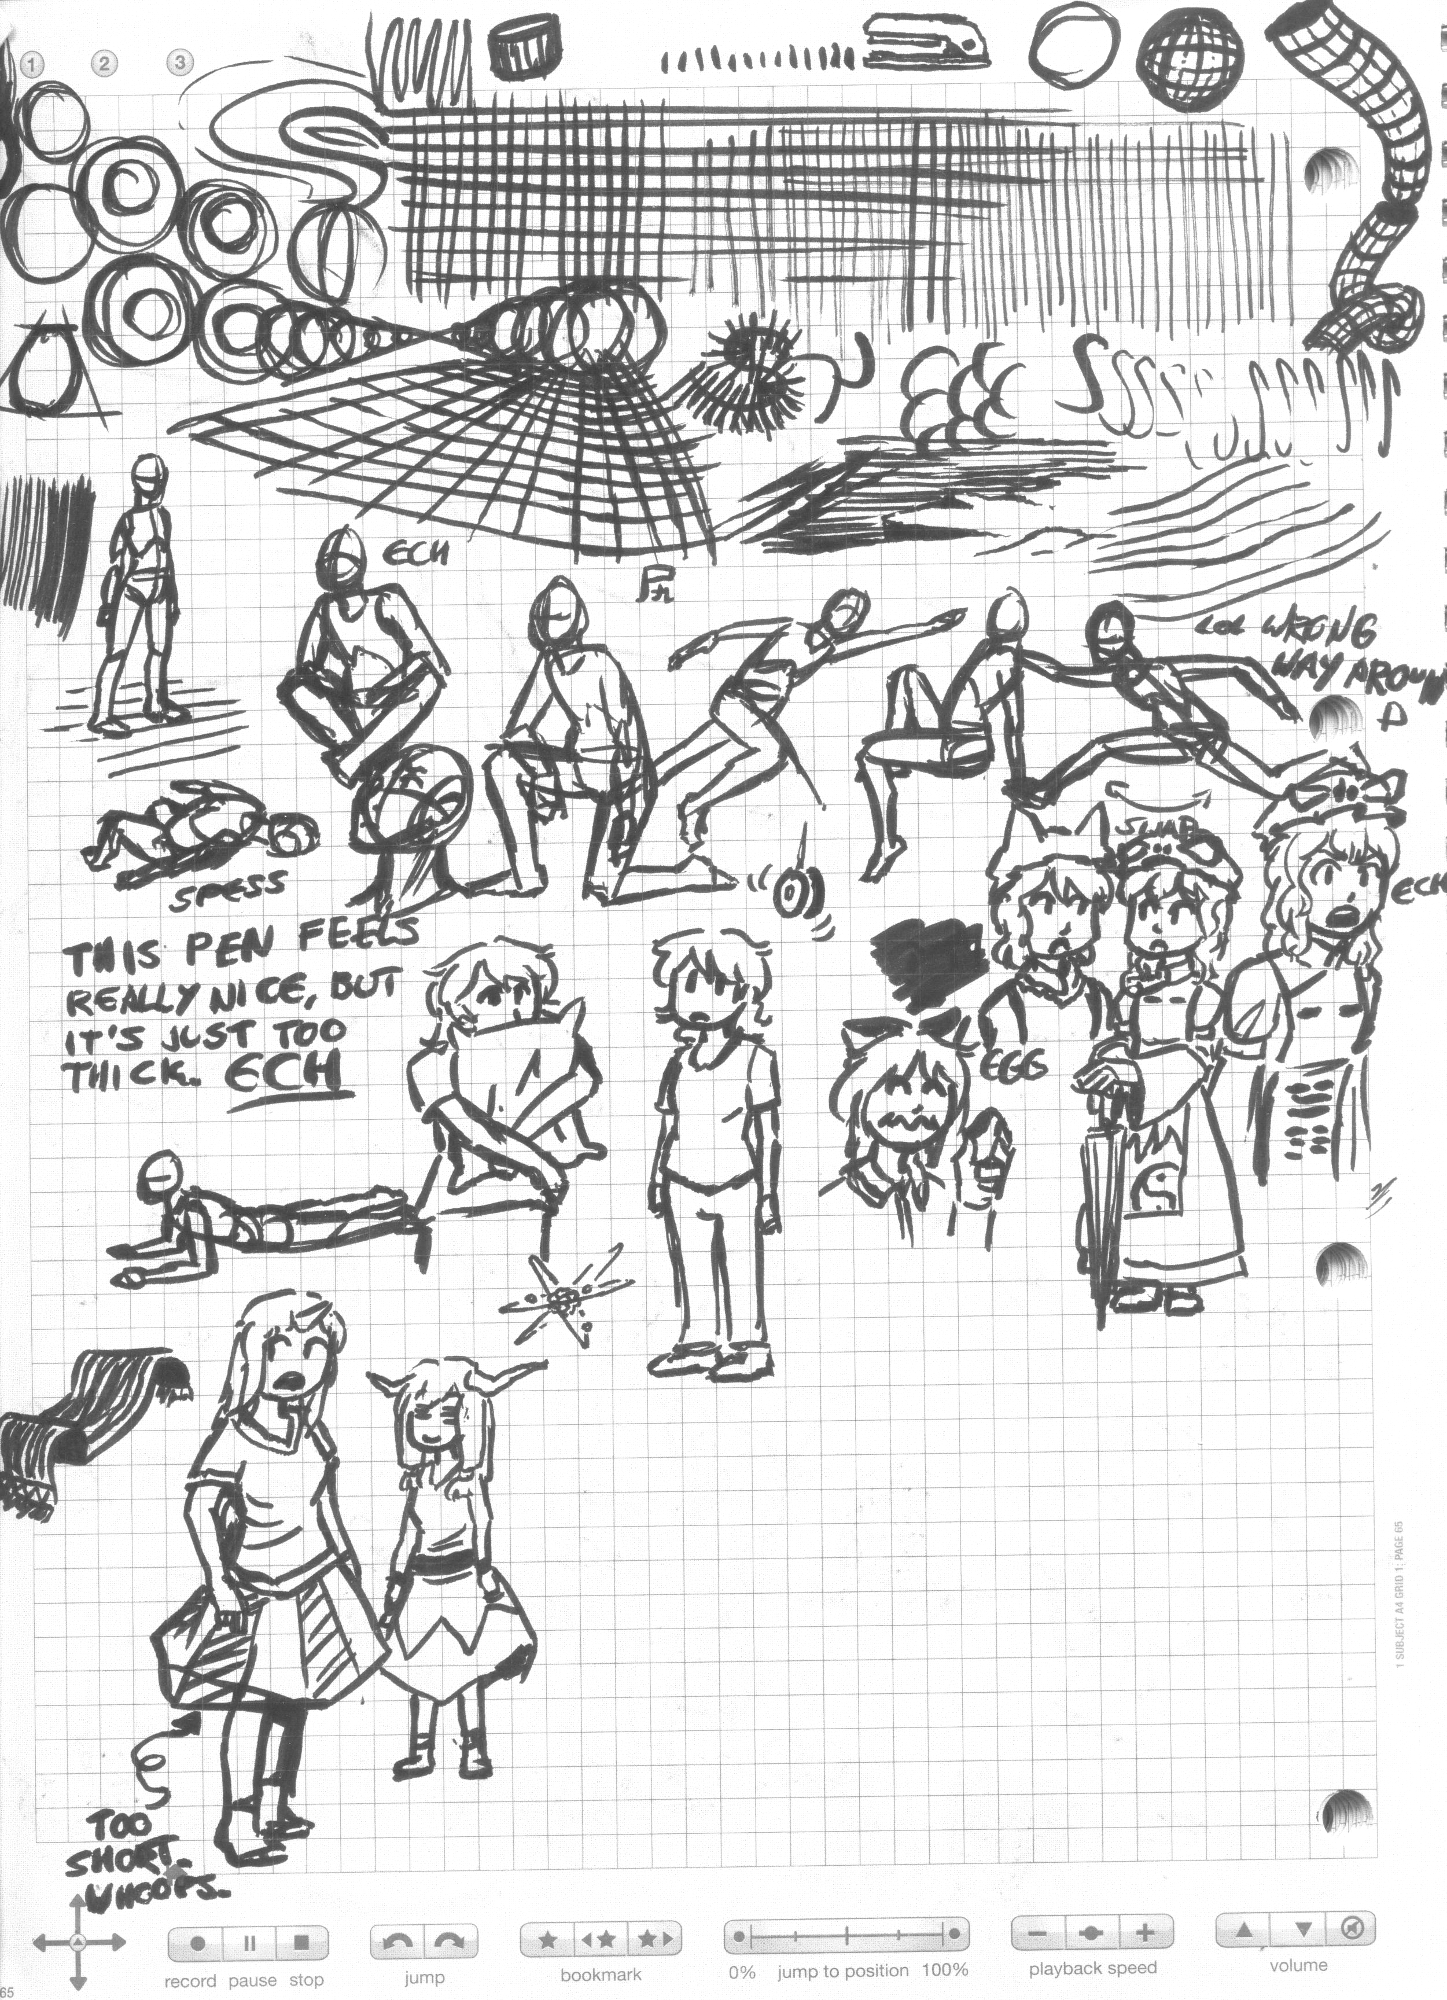 1 2 3
ECH
LOL WRONG
WAY AROUN
D
SWAP
ECH
SPESS
THIS PEN FEELS
REALLY NICE, BUT
IT'S JUST TOO
THICK. ECH
EGG
TOO
SHORT.
WHOOPS.
1 SUBJECT A4 GRID 1: PAGE 65
record pause stop
jump
bookmark
0% jump to position 100%
playback speed
volume
65